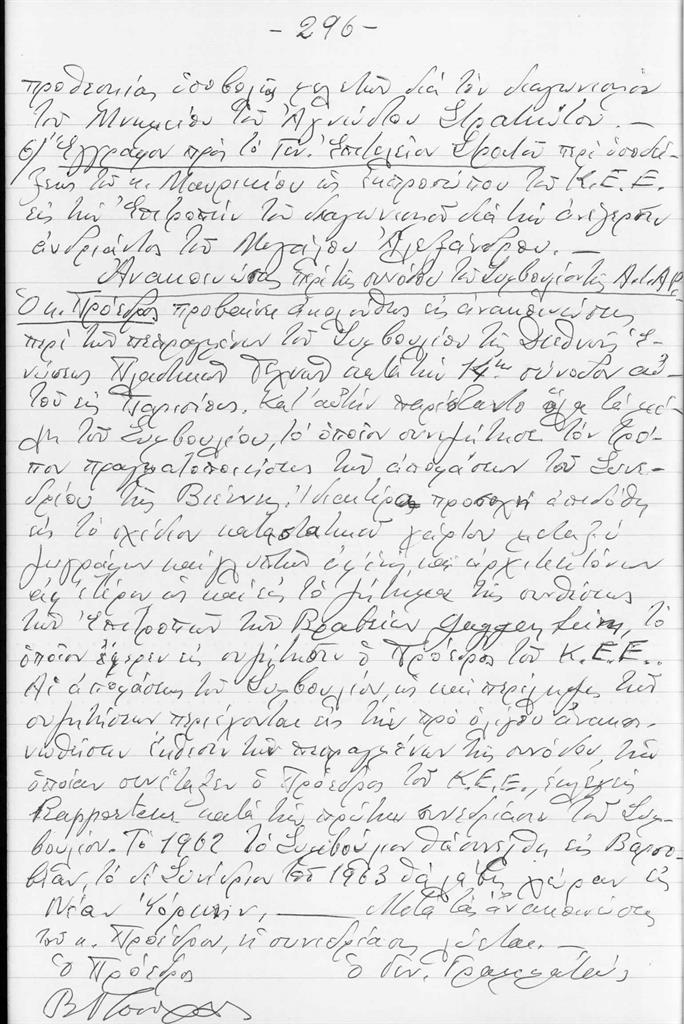 - 296 -
προθεσμίας ὑποβολῆς μελετῶν διὰ τὸν διαγωνισμὸν
τοῦ Μνημείου τοῦ Ἀγνώστου Στρατιώτου. —
6) Ἔγγραφον πρὸς τὸ Γεν. Ἐπιτελεῖον Στρατοῦ περὶ ὑποδεί-
ξεως τοῦ κ. Μαυρικίου ὡς ἐκπροσώπου τοῦ Κ.Ε.Ε.
εἰς τὴν Ἐπιτροπὴν τοῦ διαγωνισμοῦ διὰ τὴν ἀνέγερσιν
ἀνδριάντος τοῦ Μεγάλου Ἀλεξάνδρου. —
Ἀνακοινώσεις περὶ τῆς συνόδου τοῦ Συμβουλίου τῆς A.I.A.P.
Ὁ κ. Πρόεδρος προβαίνει ἀκολούθως εἰς ἀνακοινώσεις
περὶ τῶν πεπραγμένων τοῦ Συμβουλίου τῆς Διεθνοῦς Ἑ-
νώσεως Πλαστικῶν Τεχνῶν κατὰ τὴν 14ην σύνοδον αὐ-
τοῦ εἰς Παρισίους. Κατ' αὐτὴν παρίσταντο ὅλα τὰ μέ-
λη τοῦ Συμβουλίου, τὸ ὁποῖον συνεζήτησε τὸν τρό-
πον πραγματοποιήσεως τῶν ἀποφάσεων τοῦ Συνε-
δρίου τῆς Βιέννης. Ἰδιαιτέρα προσοχὴ ἀπεδόθη
εἰς τὸ σχέδιον καταστατικοῦ χάρτου μεταξὺ
ζωγράφων καὶ γλυπτῶν ἀφ' ἑνὸς καὶ ἀρχιτεκτόνων
ἀφ' ἑτέρου ὡς καὶ εἰς τὸ ζήτημα τῆς συνθέσεως
τῶν Ἐπιτροπῶν τῶν Βραβείων Guggenheim, τὸ
ὁποῖον ἔφερεν εἰς συζήτησιν ὁ Πρόεδρος τοῦ Κ.Ε.Ε..
Αἱ ἀποφάσεις τοῦ Συμβουλίου, ὡς καὶ περίληψις τῶν
συζητήσεων περιέχονται εἰς τὴν πρὸ ὀλίγου ἀνακοι-
νωθεῖσαν ἔκθεσιν τῶν πεπραγμένων τῆς συνόδου, τὴν
ὁποίαν συνέταξεν ὁ Πρόεδρος τοῦ Κ.Ε.Ε., ἐκλεγεὶς
Rapporteur κατὰ τὴν πρώτην συνεδρίασιν τοῦ Συμ-
βουλίου. Τὸ 1962 τὸ Συμβούλιον θὰ συνέλθῃ εἰς Βαρσο-
βίαν, τὸ δὲ Συνέδριον τοῦ 1963 θὰ λάβῃ χώραν εἰς
Νέαν Ὑόρκην, — Μετὰ τὰς ἀνακοινώσεις
τοῦ κ. Προέδρου, ἡ συνεδρίασις λύεται. —
Ὁ Πρόεδρος Ὁ Γεν. Γραμματεύς